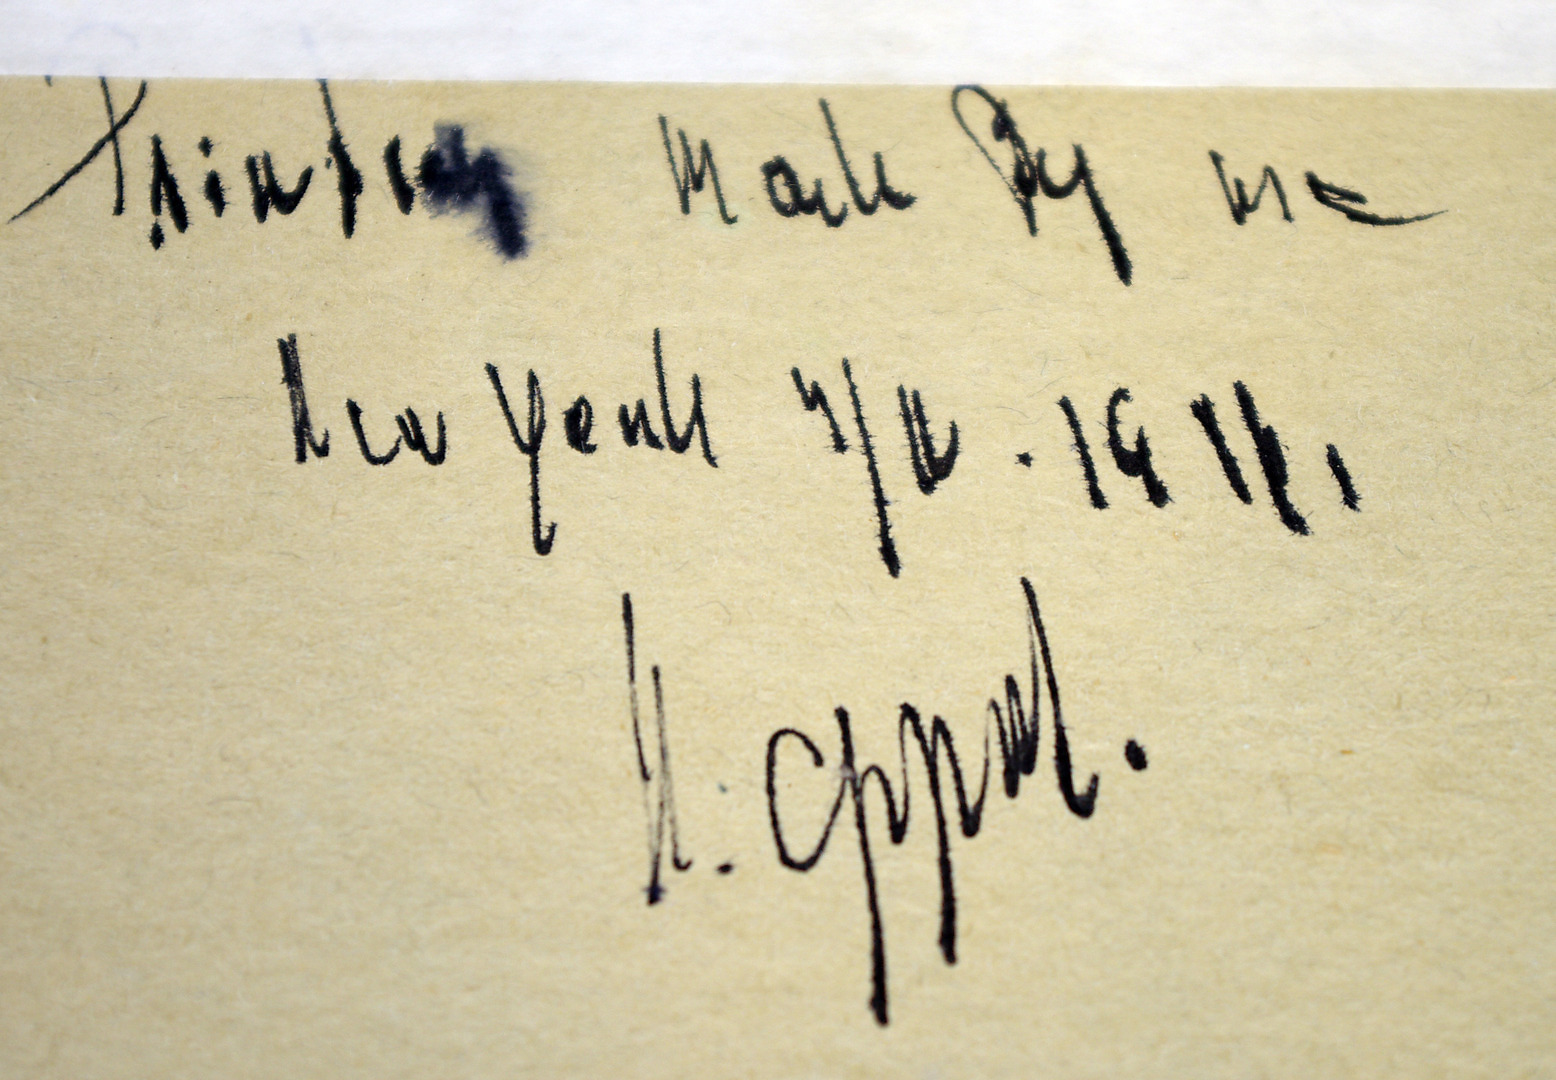 Painting Made By me
New York
K. appel.